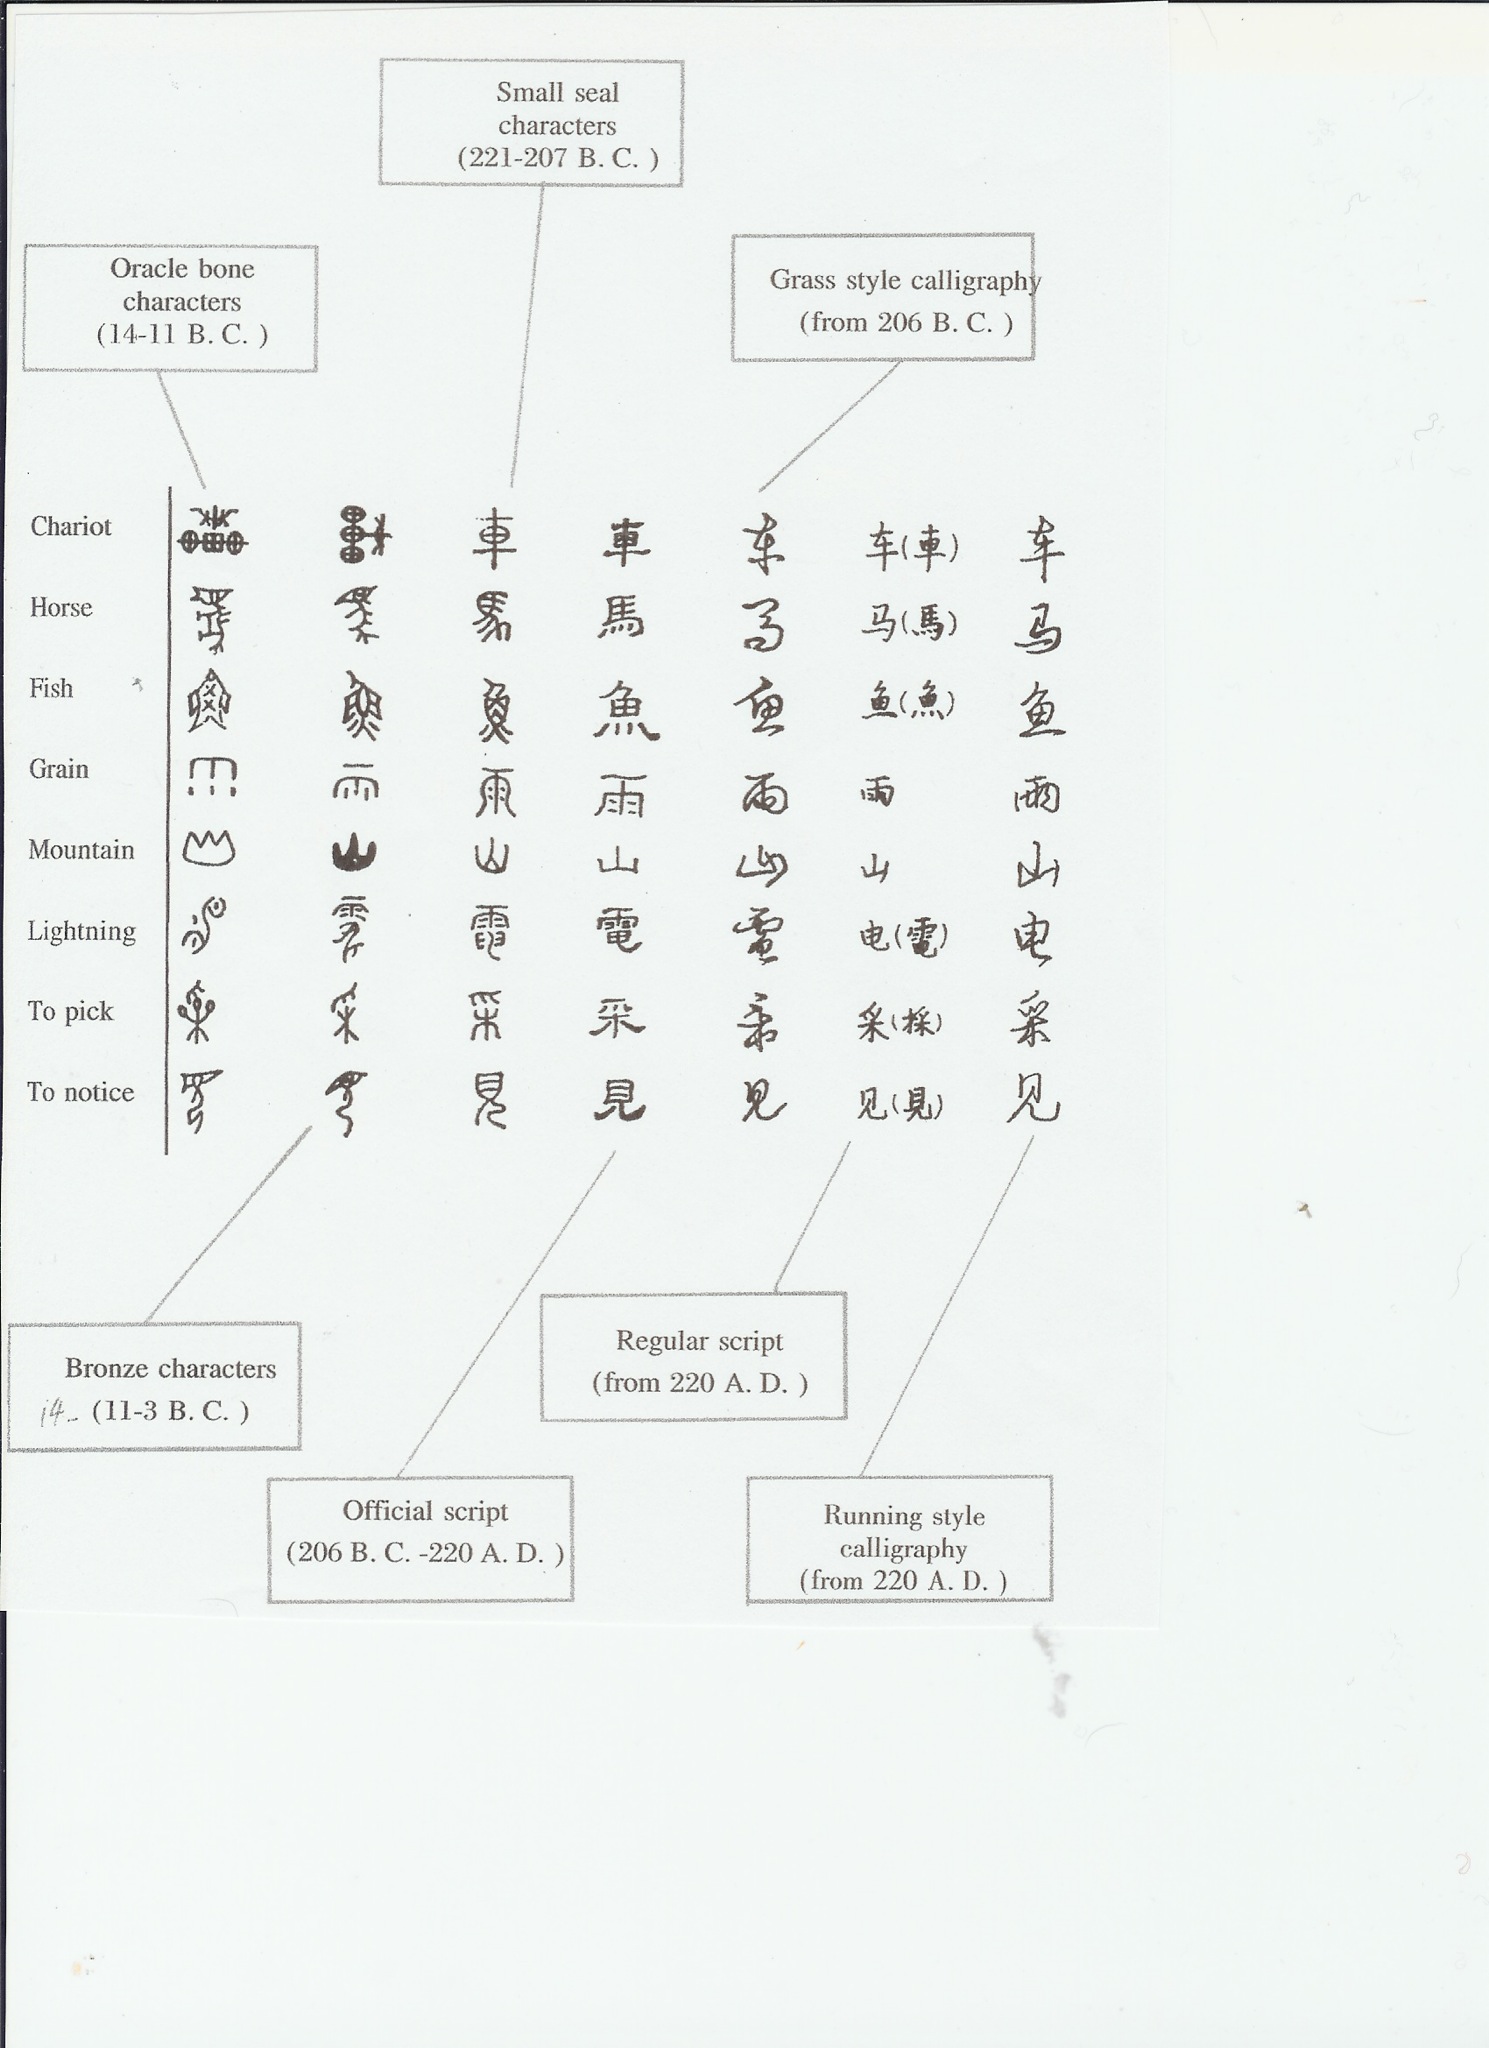 Small seal
characters
(221-207 B. C. )
Oracle bone
characters
(14-11 B. C. )
Grass style calligraphy
(from 206 B. C. )
Chariot 車 車 车(車) 车
Horse 馬 馬 马(馬) 马
Fish 魚 鱼(魚) 鱼
Grain 雨 雨 雨 雨 雨
Mountain 山 山 山 山 山
Lightning 電 電 电(電) 电
To pick 采 采 采(採) 采
To notice 見 見 见 见(見) 见
Bronze characters
14- (11-3 B. C. )
Regular script
(from 220 A. D. )
Official script
(206 B. C. -220 A. D. )
Running style
calligraphy
(from 220 A. D. )